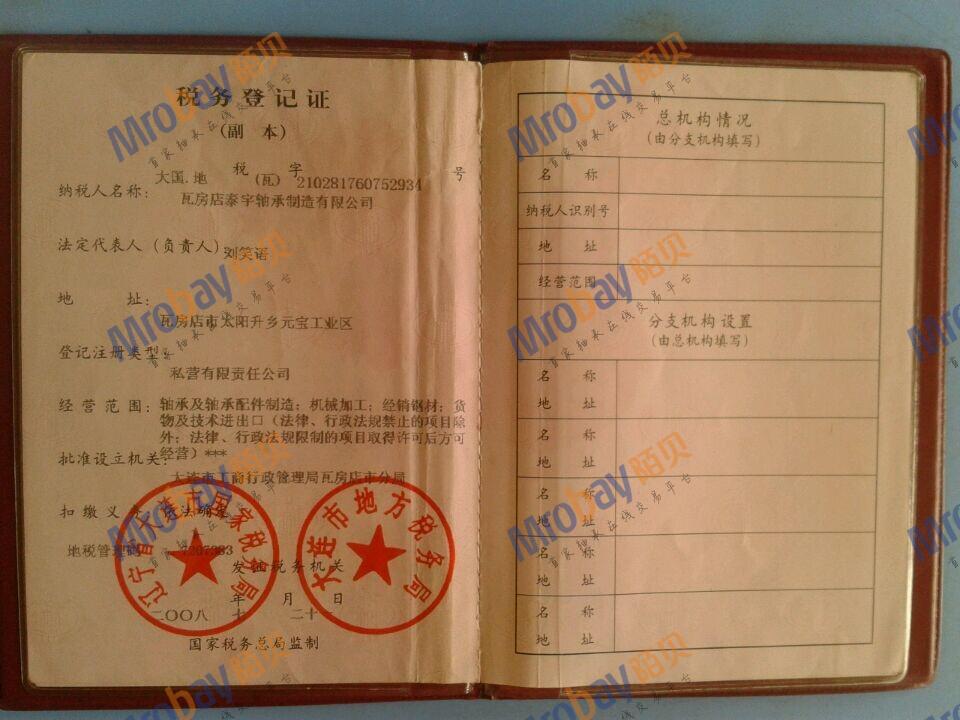 税务登记证
(副 本)
大国.地 税 (瓦) 字 210281760752934 号
纳税人名称：
瓦房店泰宇轴承制造有限公司
法定代表人（负责人）
刘笑语
地 址：
瓦房店市太阳升乡元宝工业区
登记注册类型：
私营有限责任公司
经营范围：轴承及轴承配件制造；机械加工；经销钢材；货
物及技术进出口（法律、行政法规禁止的项目除
外；法律、行政法规限制的项目取得许可后方可
经营）***
批准设立机关：
大连市工商行政管理局瓦房店市分局
扣缴义务 依法确定
地税管理码 7207383
发证税务机关
年 月 日
二〇〇八 七 二十
国家税务总局监制
辽宁省大连市国家税务局
大连市地方税务局
总机构情况
(由分支机构填写)
名 称
纳税人识别号
地 址
经营范围
分支机构设置
(由总机构填写)
名 称
地 址
名 称
地 址
名 称
地 址
名 称
地 址
名 称
地 址
Mrobay陌贝
首家轴承在线交易平台